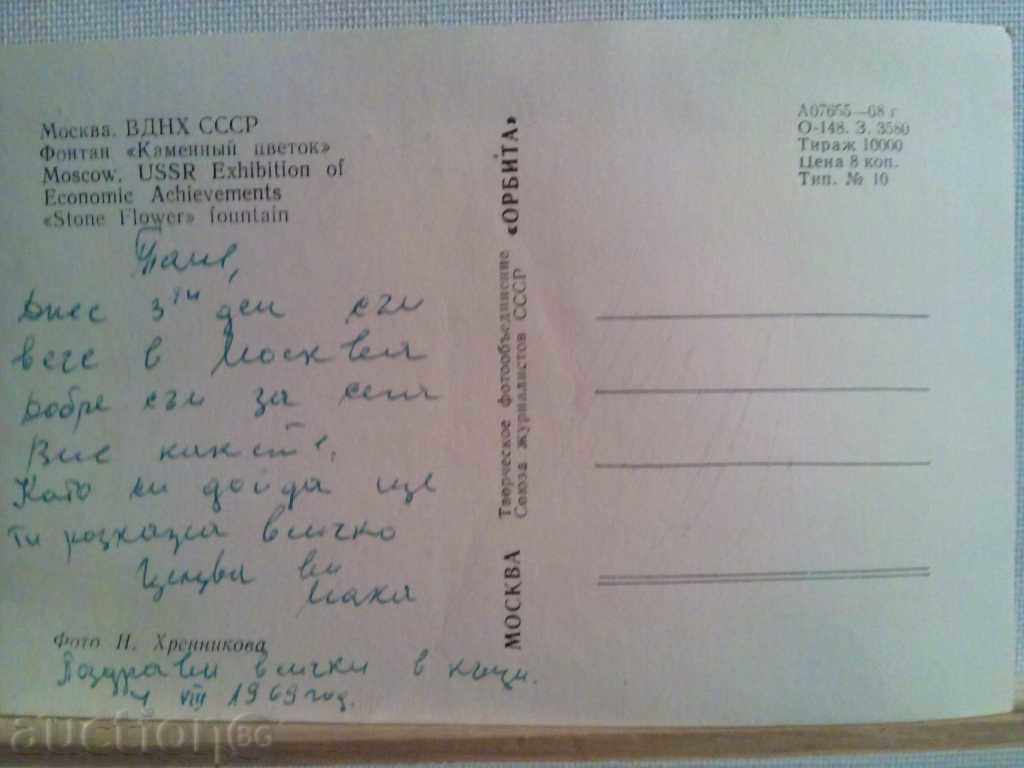 Москва. ВДНХ СССР
Фонтан «Каменный цветок»
Moscow. USSR Exhibition of
Economic Achievements
«Stone Flower» fountain
Днес 3ти ден съм
вече в Москва
Добре съм за сега
Вие как сте,
Като си дойда ще
ти разкажа всичко
Целува ви
Фото Н. Хренникова
Поздрави всички в къщи.
4 VIII 1969 год.
МОСКВА Творческое фотообъединение «ОРБИТА»
Союза журналистов СССР
А07655—68 г
О-148. З. 3580
Тираж 10000
Цена 8 коп.
Тип. № 10
auctionBG